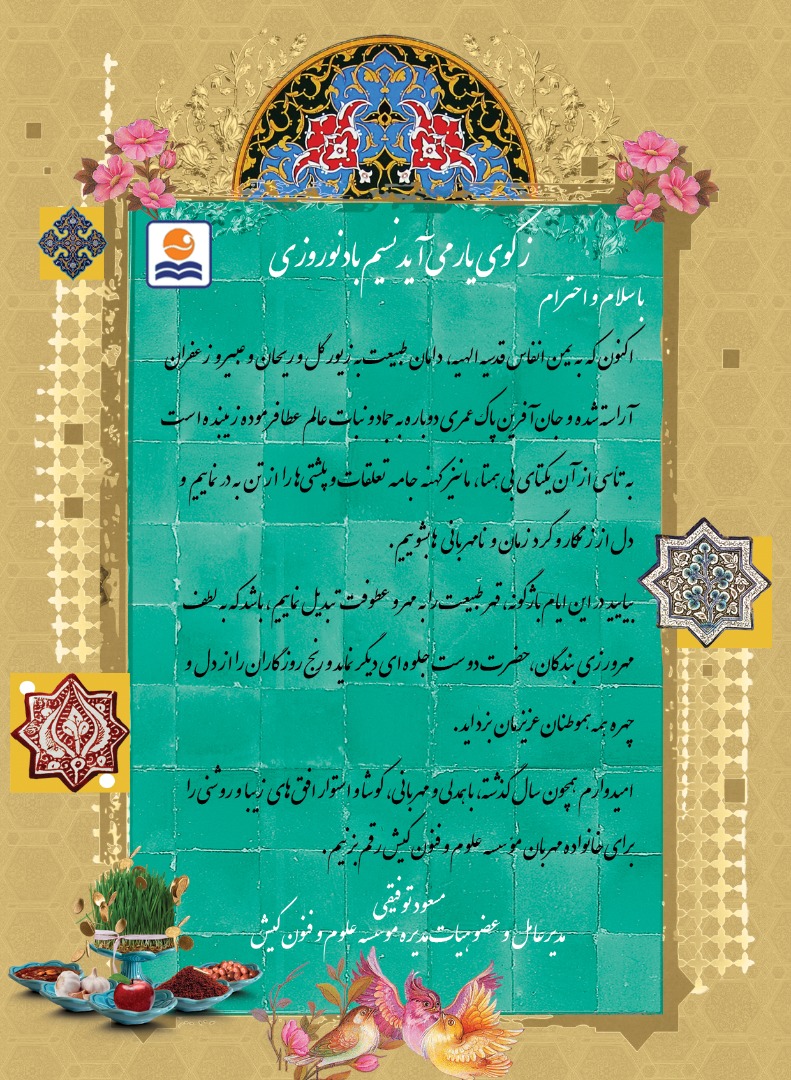 ز کوی یار می آید نسیم باد نوروزی
با سلام و احترام
اکنون که به یمن انفاس قدسیه الهیه، دامان طبیعت به زیور گل و ریحان و عبیر و زعفران
آراسته شده و جان آفرین پاک عمری دوباره به جماد و نبات عالم عطا فرموده زیبنده است
به تاسی از آن یکتای بی همتا، ما نیز کهنه جامه تعلقات و پلشتی ها را از تن به در نماییم و
دل از زنگار و گرد زمان و نامهربانی ها بشوییم .
بیایید در این ایام بازگونه، قهر طبیعت را به مهر و عطوفت تبدیل نماییم، باشد که به لطف
مهرورزی بندگان، حضرت دوست جلوه ای دیگر نماید و رنج روزگاران را از دل و
چهره همه هموطنان عزیزمان بزداید .
امیدوارم همچون سال گذشته، با همدلی و مهربانی، کوشا و استوار افق های زیبا و روشنی را
برای خانواده مهربان موسسه علوم و فنون کیش رقم بزنیم .
مسعود توفیقی
مدیرعامل و عضو هیات مدیره موسسه علوم و فنون کیش